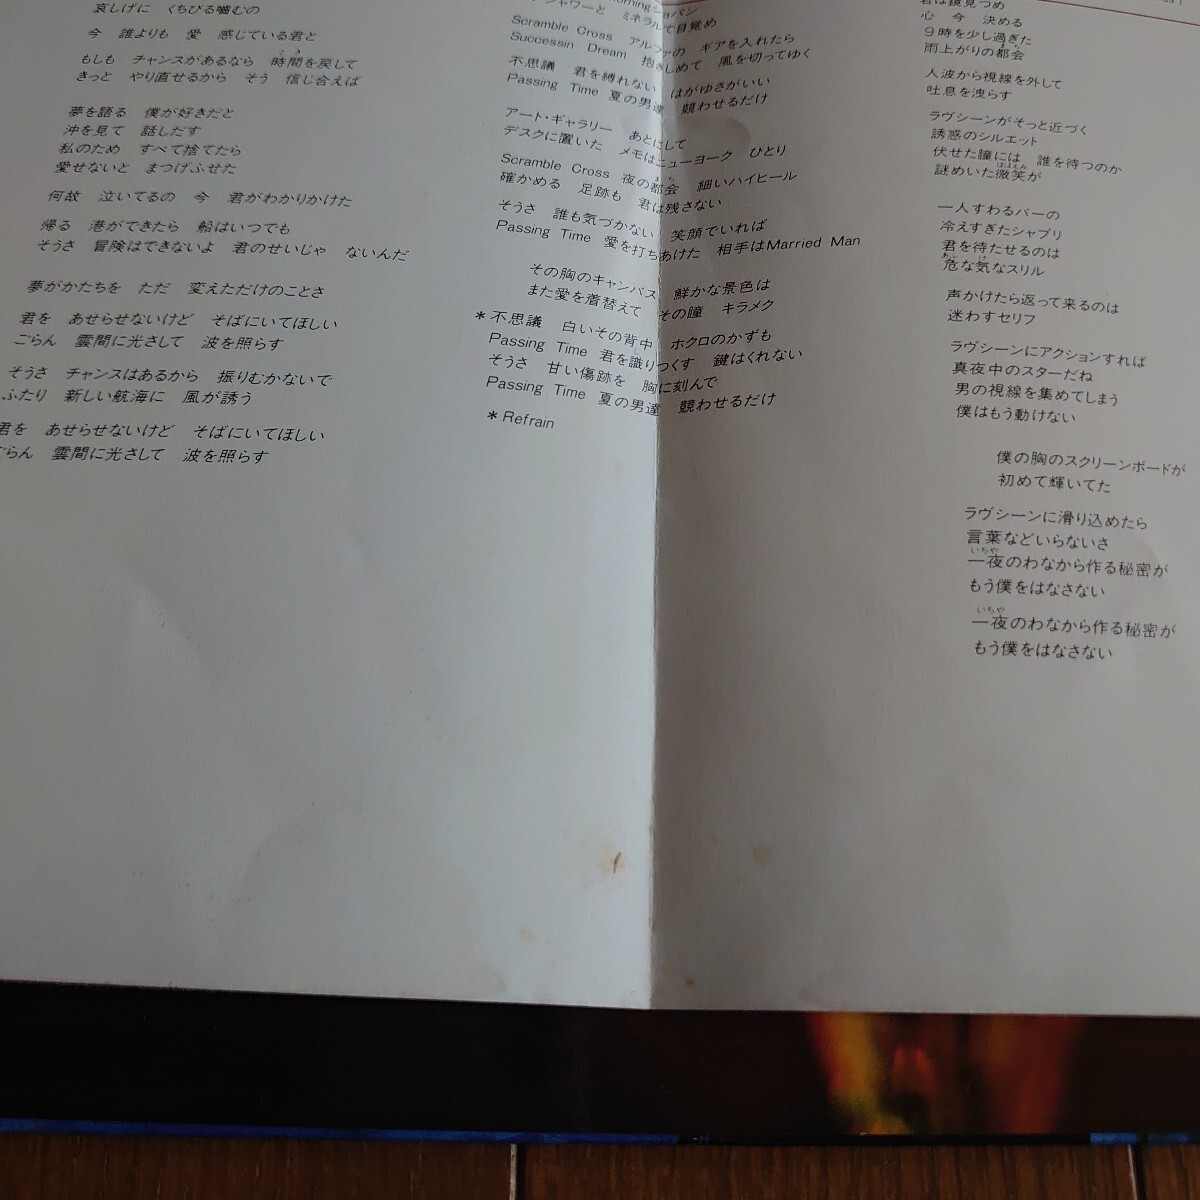 哀しげに くちびる噛むの
今 誰よりも 愛 感じている君と
もしも チャンスがあるなら 時間を戻して
きっと やり直せるから そう 信じ合えば
夢を語る 僕が好きだと
沖を見て 話しだす
私のため すべて捨てたら
愛せないと まつげふせた
何故 泣いてるの 今 君がわかりかけた
帰る 港ができたら 船はいつでも
そうさ 冒険はできないよ 君のせいじゃ ないんだ
夢がかたちを ただ 変えただけのことさ
君を あせらせないけど そばにいてほしい
ごらん 雲間に光さして 波を照らす
そうさ チャンスはあるから 振りむかないで
ふたり 新しい航海に 風が誘う
君を あせらせないけど そばにいてほしい
ごらん 雲間に光さして 波を照らす
シャワーと ミネラルで目覚め
Scramble Cross アルファの ギアを入れたら
Successin Dream 抱きしめて 風を切ってゆく
不思議 君を縛れない はがゆさがいい
Passing Time 夏の男達 競わせるだけ
アート・ギャラリー あとにして
デスクに置いた メモはニューヨーク ひとり
Scramble Cross 夜の都会 細いハイヒール
確かめる 足跡も 君は残さない
そうさ 誰も気づかない 笑顔でいれば
Passing Time 愛を打ちあけた 相手はMarried Man
その胸のキャンバス 鮮かな景色は
また愛を着替えて その瞳 キラメク
*不思議 白いその背中 ホクロのかずも
Passing Time 君を識りつくす 鍵はくれない
そうさ 甘い傷跡を 胸に刻んで
Passing Time 夏の男達 競わせるだけ
*Refrain
君は鏡見つめ
心 今 決める
9時を少し過ぎた
雨上がりの都会
人波から視線を外して
吐息を洩らす
ラヴシーンがそっと近づく
誘惑のシルエット
伏せた瞳には 誰を待つのか
謎めいた微笑が
一人すわるバーの
冷えすぎたシャブリ
君を待たせるのは
危な気なスリル
声かけたら返って来るのは
迷わすセリフ
ラヴシーンにアクションすれば
真夜中のスターだね
男の視線を集めてしまう
僕はもう動けない
僕の胸のスクリーンボードが
初めて輝いてた
ラヴシーンに滑り込めたら
言葉などいらないさ
一夜のわなから作る秘密が
もう僕をはなさない
一夜のわなから作る秘密が
もう僕をはなさない